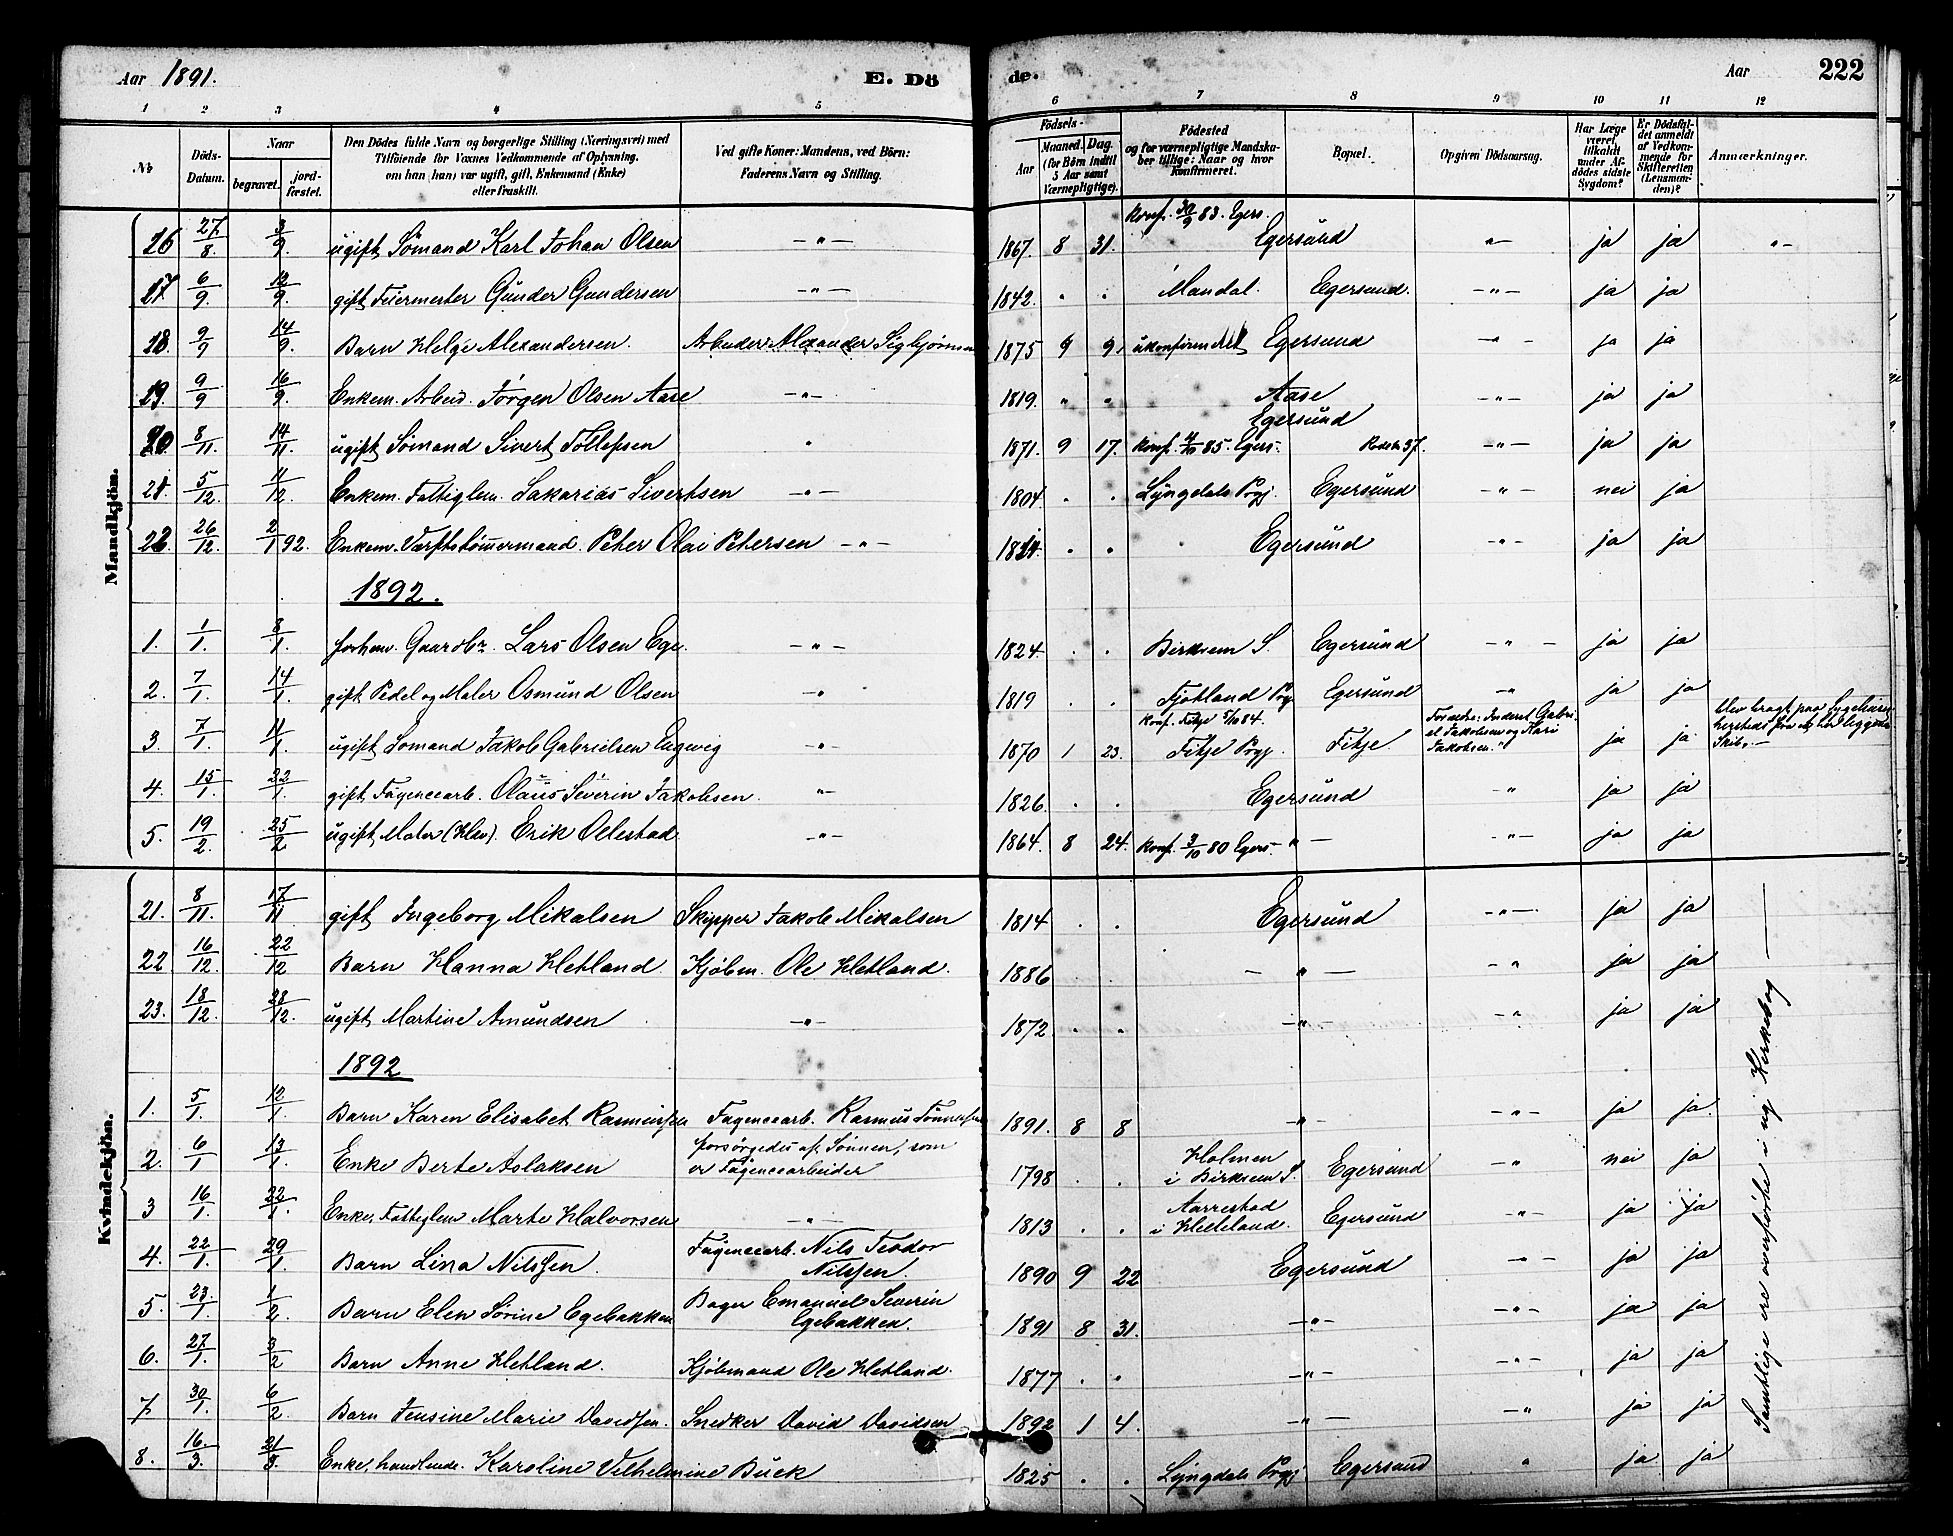 Aar 1891. E. Dö de. Aar 222
1 2 3 4 5 6 7 8 9 10 11 12
No
Döds-Datum.
Naar
begravet.
jord-fæstet.
Den Dödes fulde Navn og borgerlige Stilling (Næringsvei) med
Tilföiende for Voxnes Vedkommende af Oplysning,
om han (hun) var ugift, gift, Enkemand (Enke)
eller fraskilt.
Ved gifte Koner: Mandens, ved Börn:
Faderens Navn og Stilling.
Födsels-
Aar
Maaned. Dag.
(for Börn indtil
5 Aar samt
Værnepligtige).
Födested
og for værnepligtige Mandska-
ber tillige: Naar og hvor
Konfirmeret.
Bopæl.
Opgiven Dödsaarsag.
Har Læge
været
tilkaldt
under Af-
dödes sidste
Sygdom?
Er Dödsfal-
det anmeldt
af Vedkom-
mende for
Skifteretten
(Lensman-
den)?
Anmærkninger.
Mandkjön.
26 27/8. 3/9. ugift Sömand Karl Johan Olsen —„— 1867. 8 31. Konf. 30/9 83. Egers. Egersund „— ja ja „—
17 6/9. 12/9. gift Feiermester Gunder Gundersen —„— 1842. „ „ Mandal. Egersund. —„— ja ja
18. 9/9 14/9. Barn Helge Alexandersen. Arbeider Alexander Sigbjørnsen 1875 9 9. ukonfirmeret Egersund —„— ja ja
19. 9/9 16/9. Enkem. Arbeid. Jörgen Olsen Aase —„— 1819. „ „ Aase —„— ja ja
20 8/11. 14/11. ugift Sömand Sivert Tollefsen „ 1871. 9 17. Egersund Konf. 4/10 85. Egers. —„— ja ja
21 5/12 11/12. Enkem. Fattiglem. Sakarias Sivertsen —„— 1804. „ „ Lyngdals Prgj. Egersund —„— nei ja
22. 26/12. 2/1 92. Enkem. Værftstömmermand. Peter Olai Petersen —„— „ „ Egersund —„— ja ja
1892.
1. 1/1. 8/1. forhen. Gaardbr. Lars Olsen Ege. —„— 1824. „ „ Birkrem S. Egersund —„— ja ja
2. 7/1. 14/1. gift Pedel og Maler Osmund Olsen —„ 1819 „ „ Fjotland Prg Egersund —„ ja ja
3. 7/1. 11/1. ugift Sömand Jakob Gabrielsen Engvig „— 1870 1 23. Konf. Fitje 5/10 84. Fitje Prgj. Fitje. Forældre: Inderst Gabri-
el Jakobsen og Kari
Jakobsen." ja ja blev bragt paa Sygehuset
hersteds fra et her liggende
Skib. —
4. 15/1. 22/1. gift Fayencearb. Olaus Severin Jakobsen. „— 1826. „ „ Egersund „ ja ja
5. 19/2. 25/2 ugift Maler (Elev). Erik Ollestad —„— 1864. 8 24. Konf. 3/10 80 Egers. „— —„— ja ja
Kvindekjön.
21. 8/11. 17/11 gift Ingeborg Mikalsen Skipper Jakob Mikalsen 1814 „ „ Egersund —„— ja ja
22 16/12. 22/12 Barn Hanna Hetland Kjöbm. Ole Hetland. 1886 „ „ —„— —„ ja ja
23. 18/12. 28/12. ugift Martine Amundsen —„— 1872. „ „ —„— —„ ja ja
1892
1. 5/1. 12/1. Barn Karen Elisabet Rasmussen Fayencearb. Rasmus Tönnesen 1891. 8 8 —„— —„— ja ja.
2. 6/1 13/1. Enke Berte Aslaksen forsörgedes af Sönnen, som
er Fayencearbeider 1798 „ „ Holmen
i Birkrem S. Egersund —„ nei ja
3 16/1. 22/1. Enke, Fattiglem Marte Halvorsen —„— 1813 „ „ Aarrestad
i Helleland. Egersund —„ ja ja
4. 22/1. 29/1 Barn Lina Nilssen. Fayencearb. Nils Teodor
Nilssen. 1890 9 22 Egersund —„— ja ja
5. 23/1 1/2. Barn Elen Sörine Egebakken Bager Emanuel Severin
Egebakken. 1891 8 31. —„— —„— ja ja
6. 27/1. 3/2 Barn Anne Hetland. Kjöbmand Ole Hetland. 1877 „ „ —„— —„— ja ja
7 30/1. 6/2. Barn Jensine Marie Davidsen. Snedker David Davidsen 1892 1 4. —„— —„ ja ja
8. 16/3. 21/3. Enke, handlende. Karoline Vilhelmine Buck 1825 „ „ Lyngdals Prgj Egersund „ ja ja
Samtlige ere overförte i ny Kirkebog —